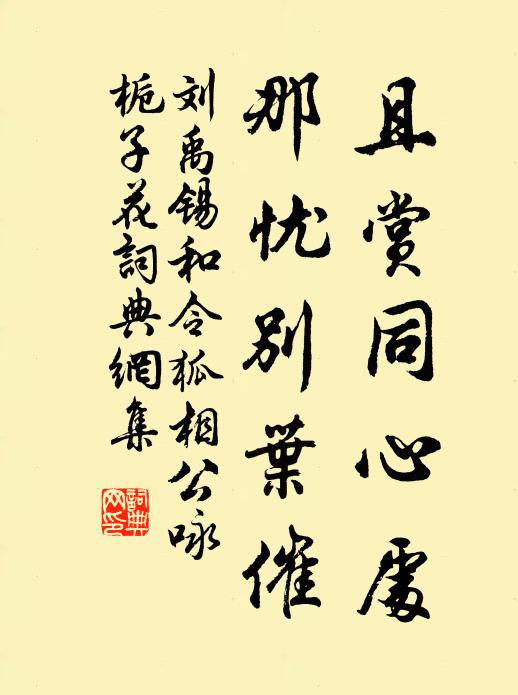 且赏同心處
那忧别葉催
刘禹锡和令狐相公咏
栀子花詞典網集
詞典网印